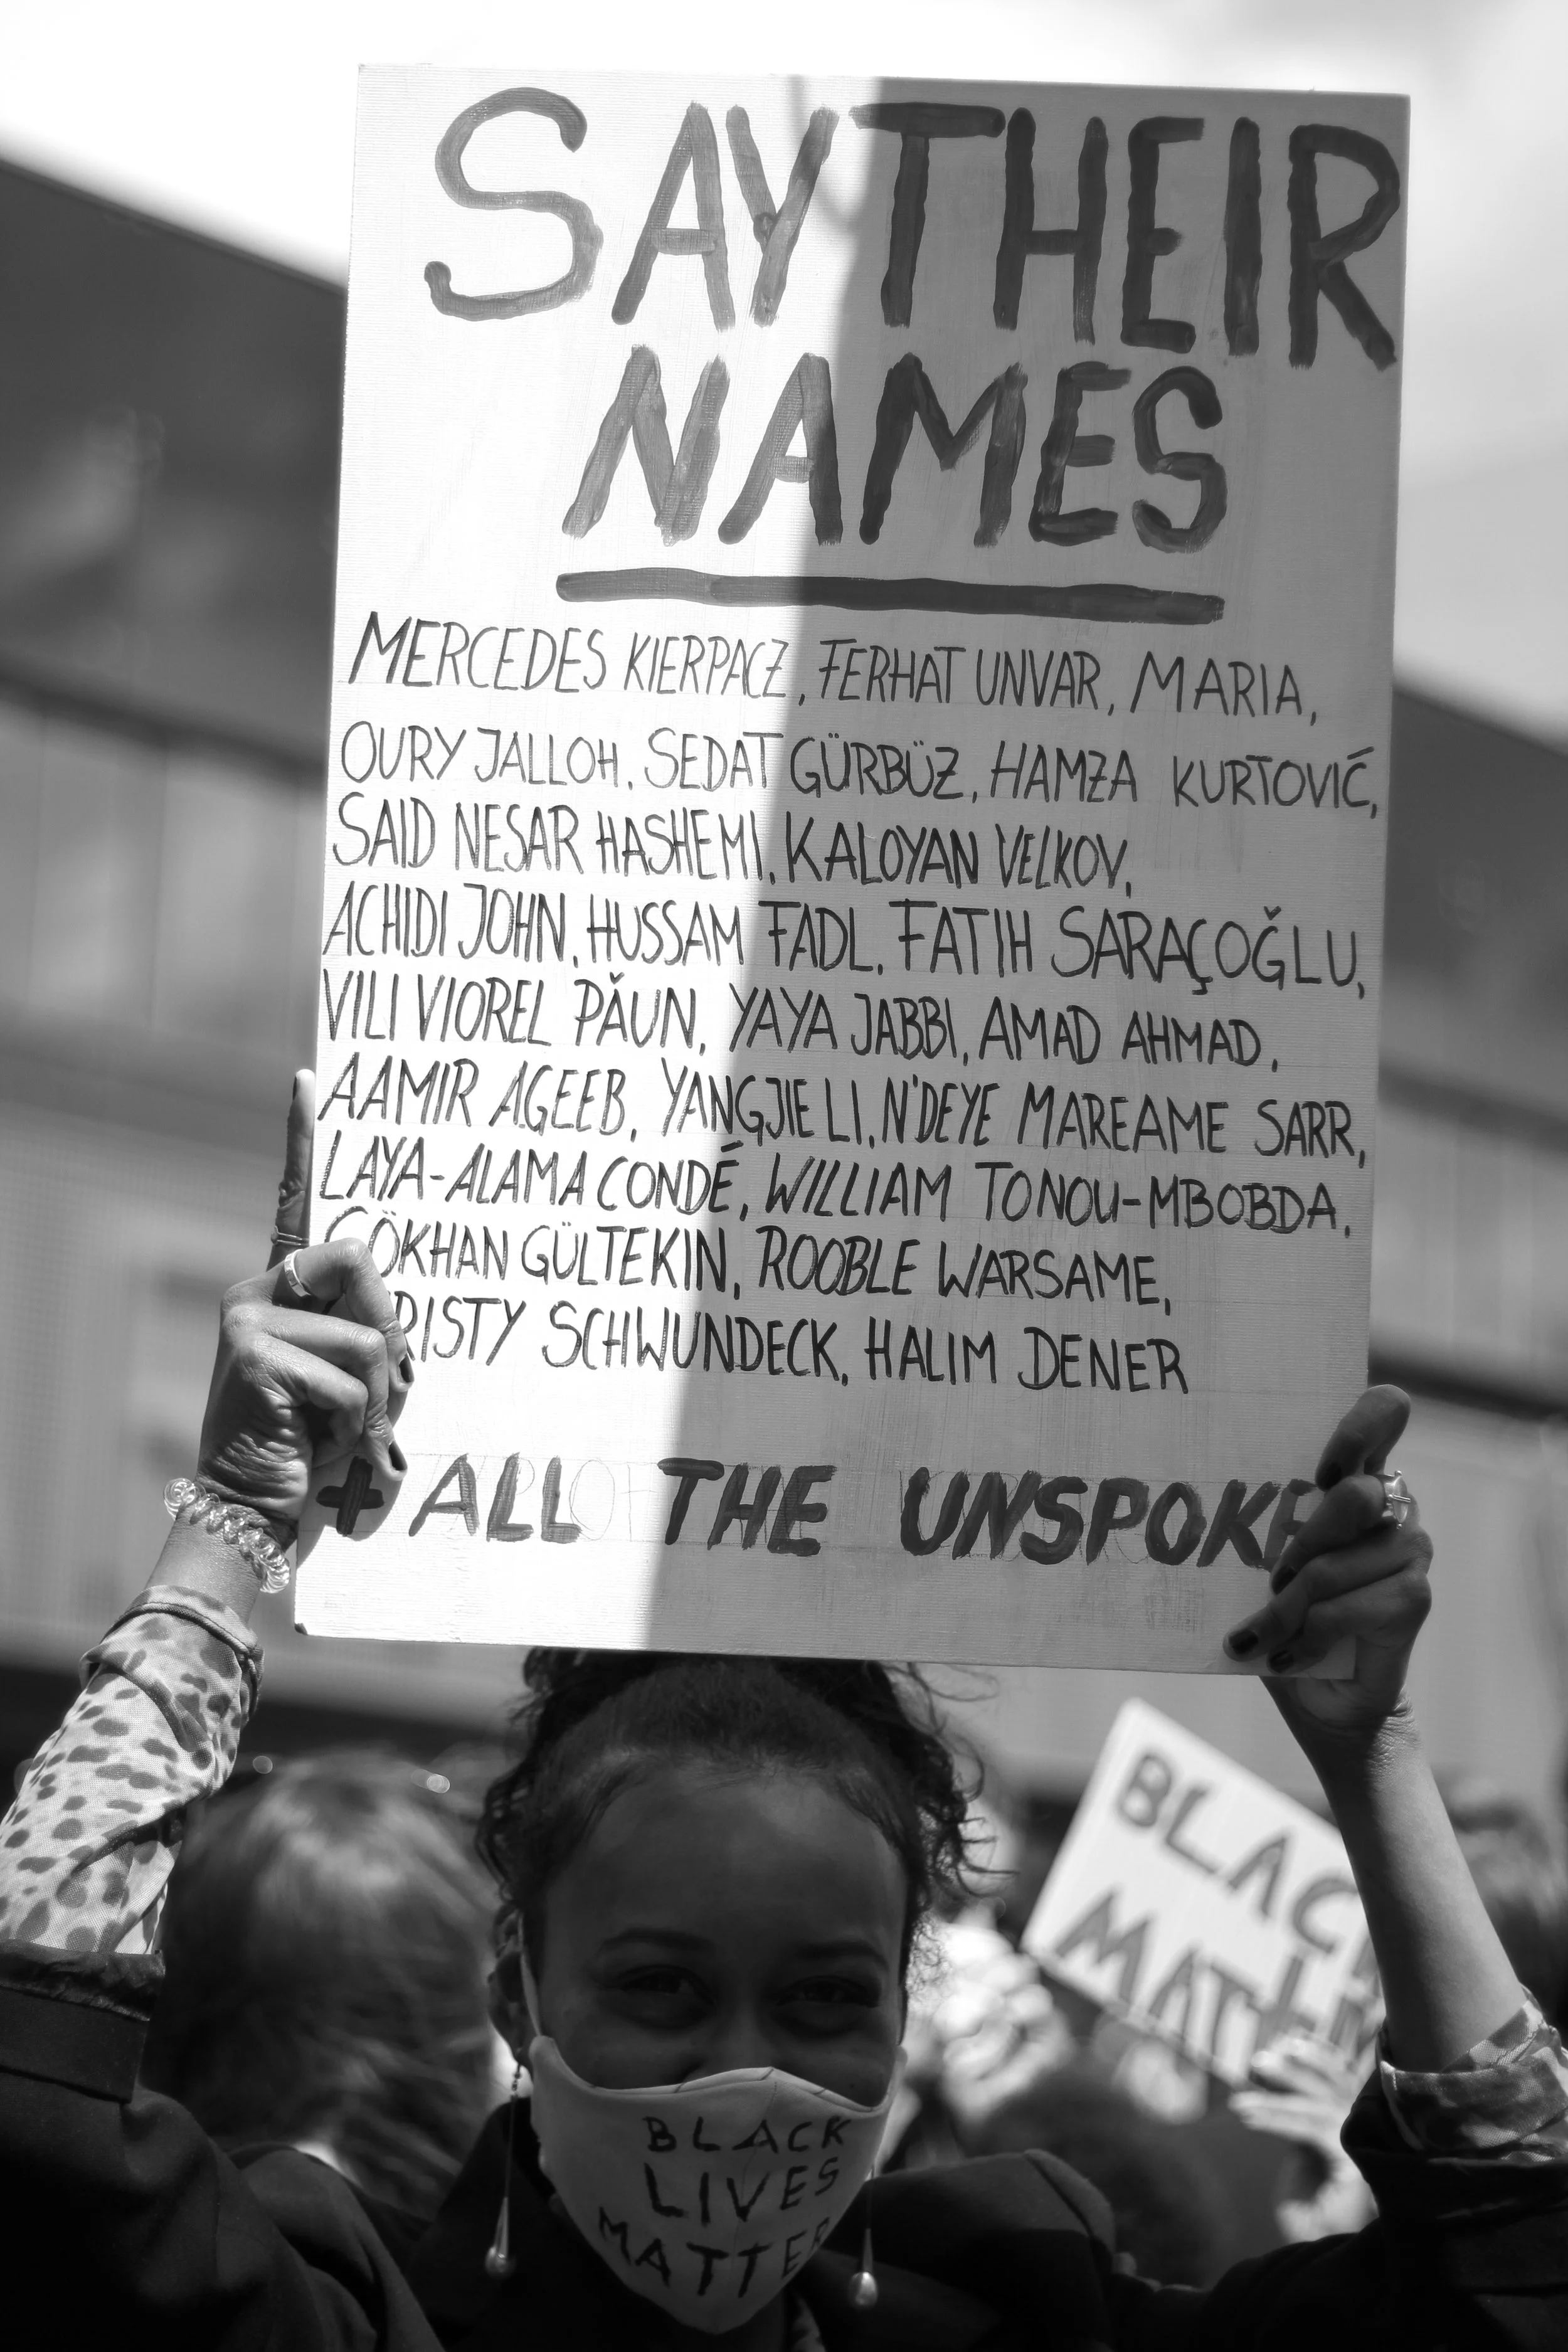 SAY THEIR
NAMES
MERCEDES KIERPACZ, FERHAT UNVAR, MARIA,
OURY JALLOH, SEDAT GÜRBÜZ, HAMZA KURTOVIĆ,
SAID NESAR HASHEMI, KALOYAN VELKOV,
ACHIDI JOHN, HUSSAM FADL, FATIH SARAÇOĞLU,
VILI VIOREL PǍUN, YAYA JABBI, AMAD AHMAD,
AAMIR AGEEB, YANGJIE LI, N'DEYE MAREAME SARR,
LAYA-ALAMA CONDÉ, WILLIAM TONOU-MBOBDA,
GÖKHAN GÜLTEKIN, ROOBLE WARSAME,
RISTY SCHWUNDECK, HALIM DENER
+ ALL THE UNSPOKE
BLACK
LIVES
MATTER
BLAC
MATTE